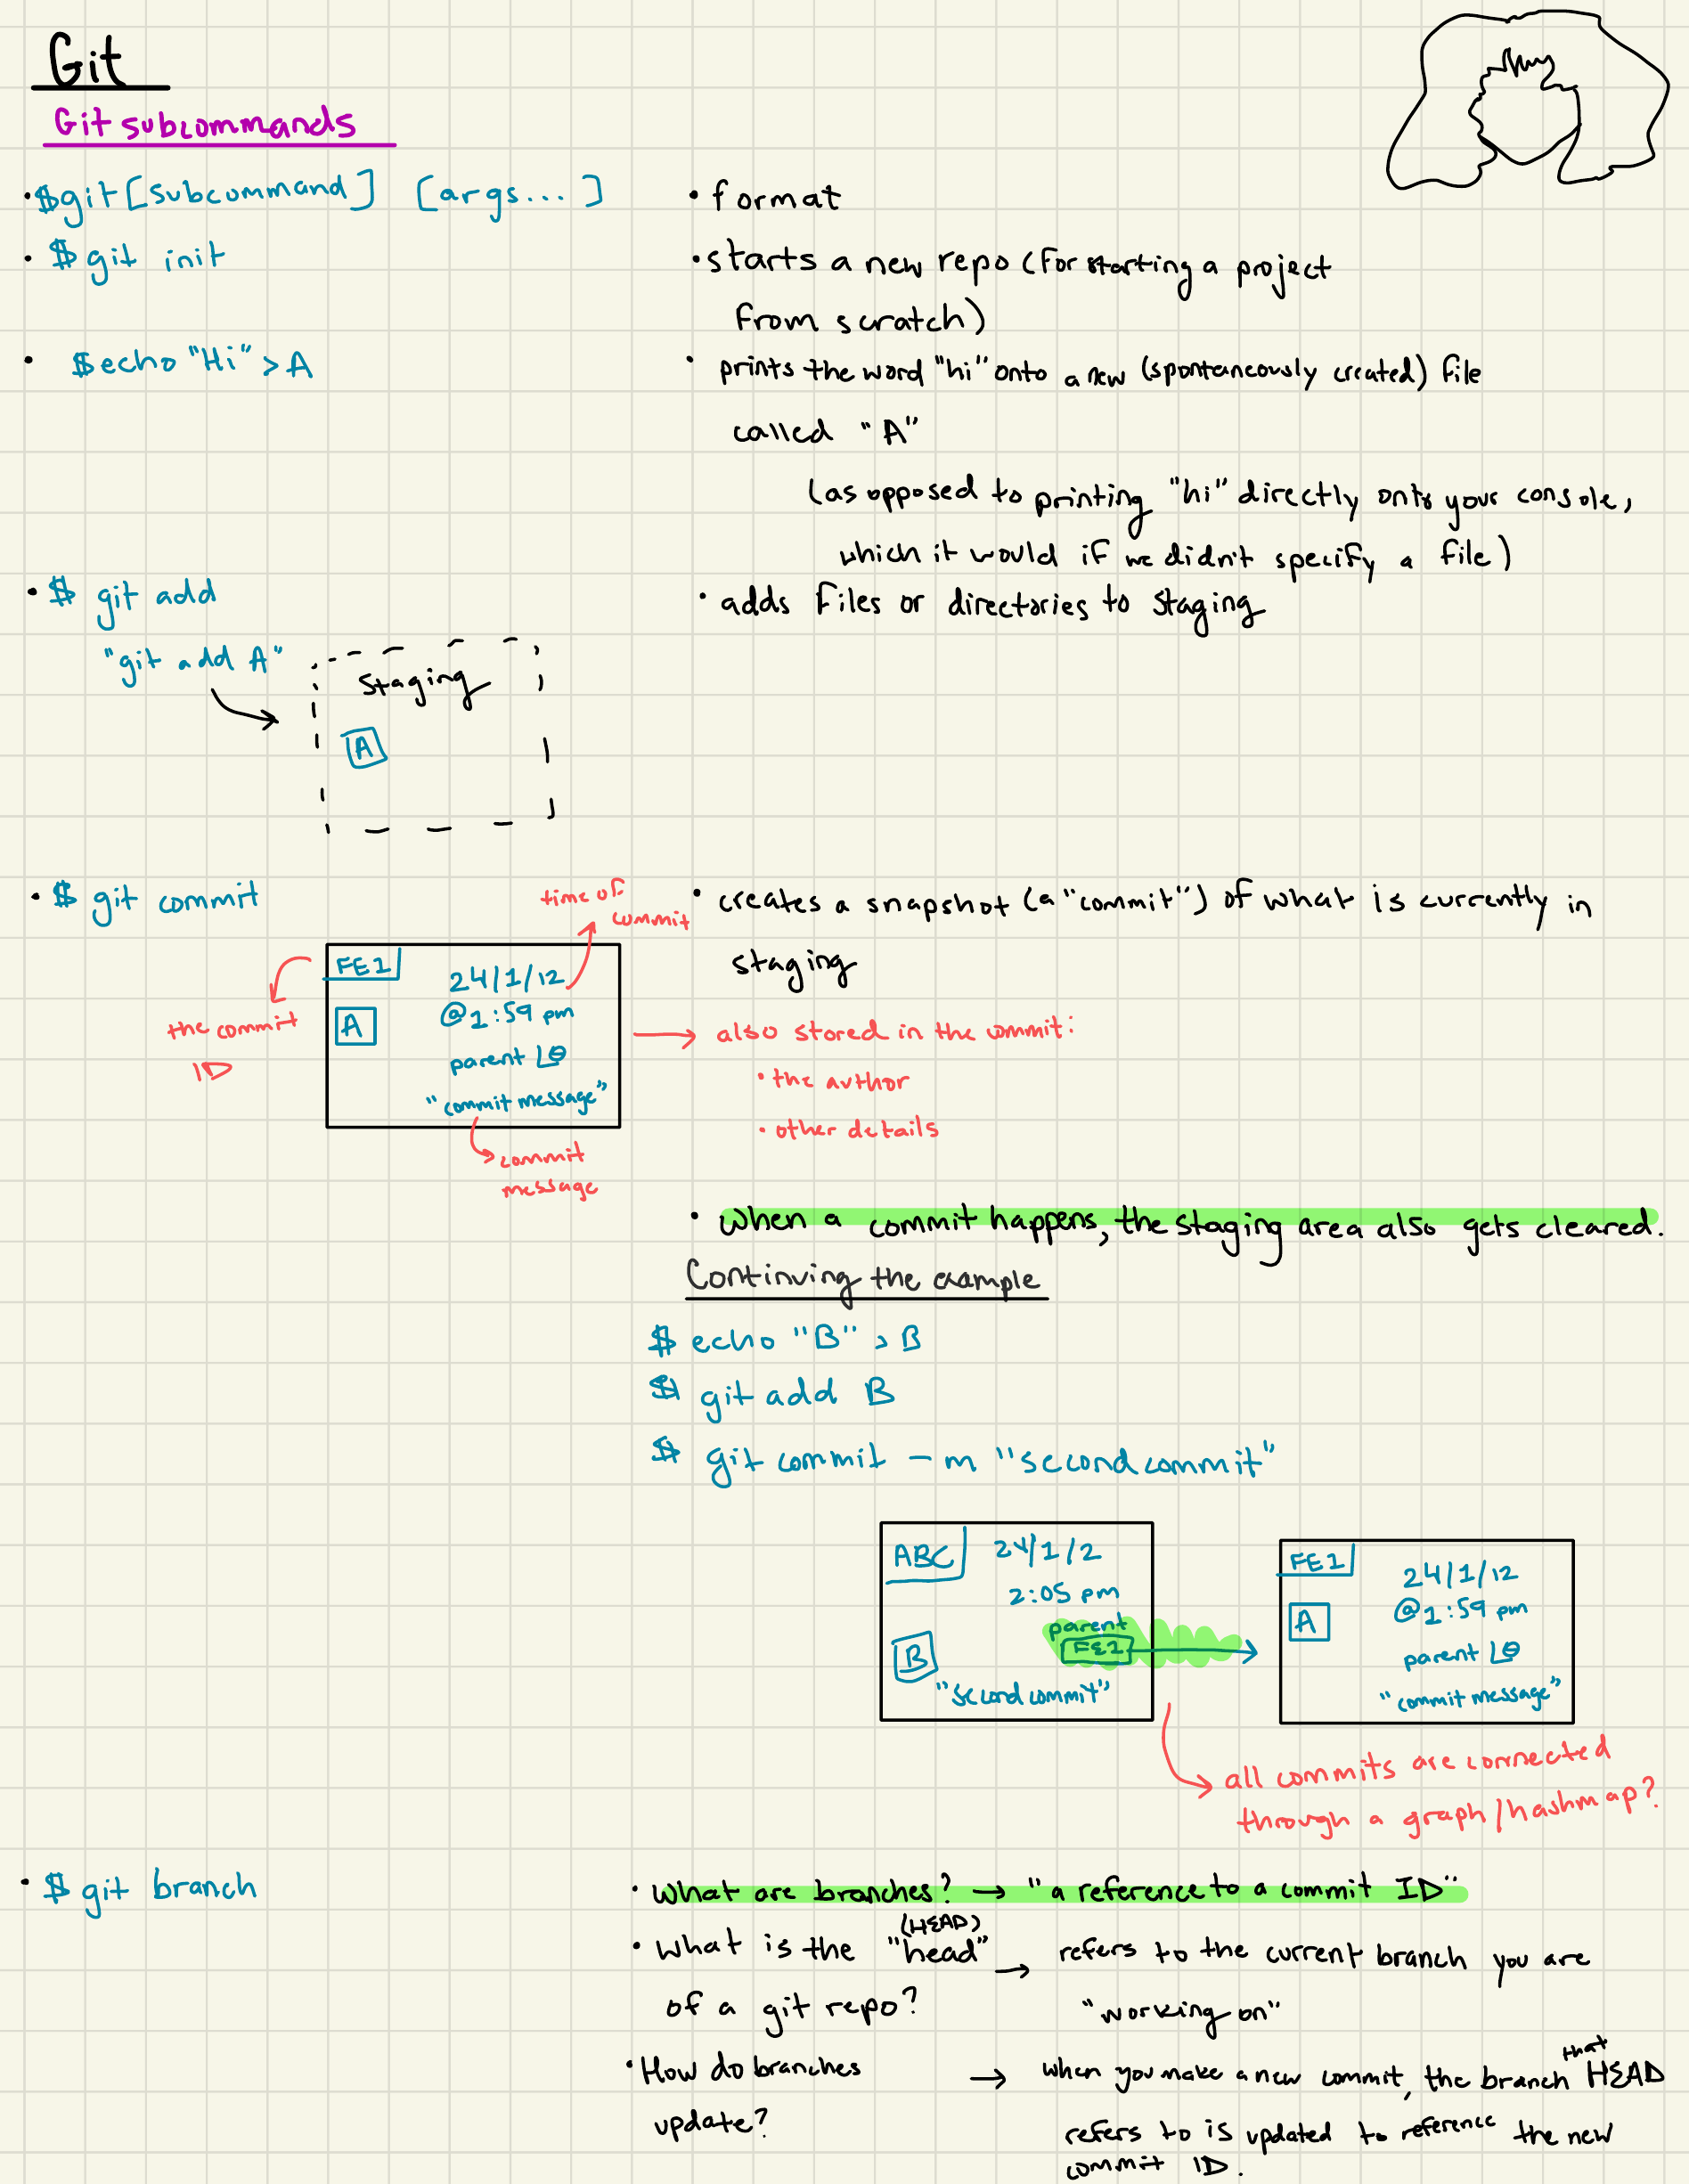 Git
Git subcommands
• $git [subcommand] [args...]
• format
• $ git init
• starts a new repo (for starting a project
from scratch)
• $echo "Hi" > A
• prints the word "hi" onto a new (spontaneously created) file
called "A"
(as opposed to printing "hi" directly onto your console,
which it would if we didn't specify a file)
• $ git add
• adds files or directories to staging
"git add A"
staging
A
• $ git commit
• creates a snapshot (a "commit") of what is currently in
staging
time of
commit
FE1
24/1/12
@1:59 pm
A
parent
"commit message"
the commit
ID
commit
message
also stored in the commit:
• the author
• other details
• when a commit happens, the staging area also gets cleared.
Continuing the example
$ echo "B" > B
$ git add B
$ git commit -m "second commit"
ABC
24/1/2
2:05 pm
parent
FE1
B
"second commit"
FE1
24/1/12
@1:59 pm
A
parent
"commit message"
all commits are connected
through a graph/hashmap?
• $ git branch
• what are branches? → "a reference to a commit ID"
(HEAD)
• what is the "head" → refers to the current branch you are
of a git repo? "working on"
• How do branches → when you make a new commit, the branch that HEAD
update? refers to is updated to reference the new
commit ID.